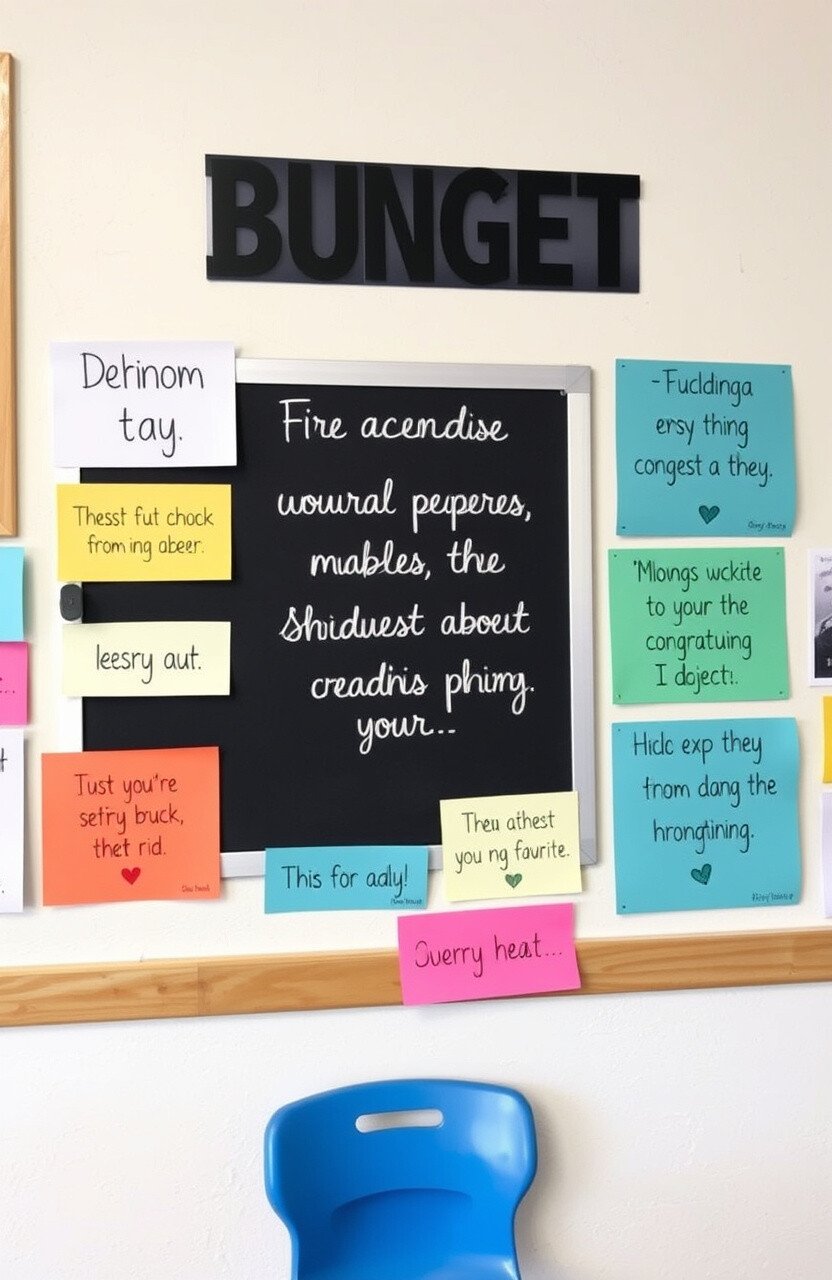 BUNGET
Dehinom
tay.
Thesst fut chock
from ing abeer.
leesry aut.
Tust you're
setry buck,
thet rid.
Fire acendise
uowural pepperes,
mables, the
Shiduest about
creadnis phimg.
your...
This for aaly!
Theu athest
you ng favurite.
Ouerry heat...
-Fucldinga
ersy thing
congest a they.
"Mlovngs wckite
to your the
congratuing
I doject:.
Hidc exp they
from dang the
hrongtining.